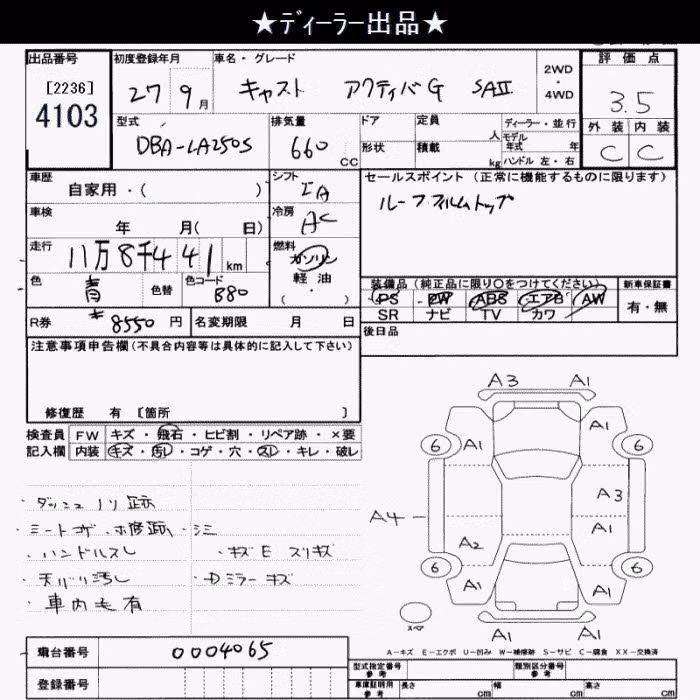 ★ディーラー出品★
出品番号 初度登録年月 車名・グレード 2WD・4WD 評価点
[2236] 4103 27 9月 キャスト アクティバG SAⅡ 3.5
型式 排気量 ドア 定員 人 ディーラー・並行 外装 内装
DBA-LA250S 660 CC 形状 積載 kg モデル年式 年 ハンドル 左・右 C C
車歴 シフト セールスポイント (正常に機能するものに限ります)
自家用・( ) IA ルーフフィルムトップ
車検 冷房
年 月( 日) AC
走行 燃料
11万8千441km ガソリン
色 色替 色コード 軽油 装備品 (純正品に限り○をつけてください) 新車保証書
青 B80 (・) PS PW ABS エアB AW 有・無
SR ナビ TV カワ
R券 ¥8550円 名変期限 月 日 後日品
注意事項申告欄(不具合内容等は具体的に記入して下さい)
修復歴 有 [箇所 ]
検査員 FW キズ・飛石・ヒビ割・リペア跡・×要
記入欄 内装 キズ・汚レ・コゲ・穴・スレ・キレ・破レ
・ダッシュノリ跡
・シートコゲ・補修跡・シミ
・ハンドルスレ ・キズE スリキズ
・天バリ汚レ ・Dミラーキズ
・車内毛有
A3 A1
6 A1 A1 6
A3
A4 A1
A2
6 6
A1 A1
スペア
A1 A1
A-キズ E-エクボ U-凹み W-補修跡 S-サビ C-腐食 XX-交換済
車台番号 0004065
型式指定番号 参考 類別区分番号 参考
登録番号
車庫証明用 参考 長さ cm 幅 cm 高さ cm